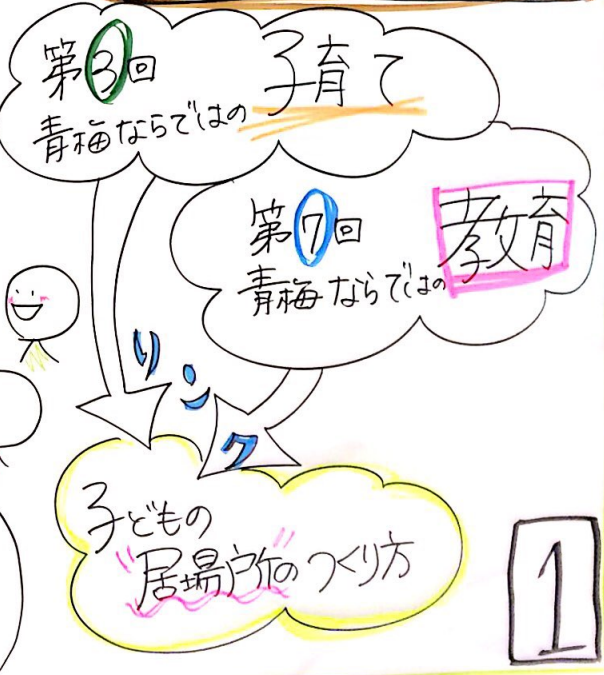 第3回
青梅ならではの 子育て
第7回
青梅ならではの 教育
リンク
子どもの
"居場所"のつくり方
1